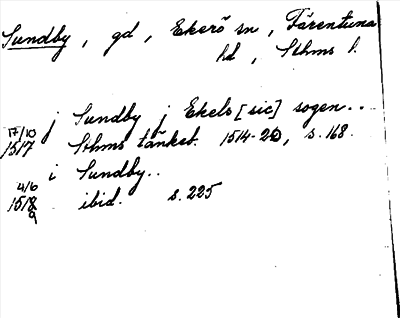 Sundby, gd, Ekerö sn, Färentuna
hd, Sthms l.
j Sundby j Ekels [sic] sogen..
17/10
1517 Sthms tänkeb. 1514-20, s. 168.
i Sundby..
4/6
1518 ibid. s. 225
9